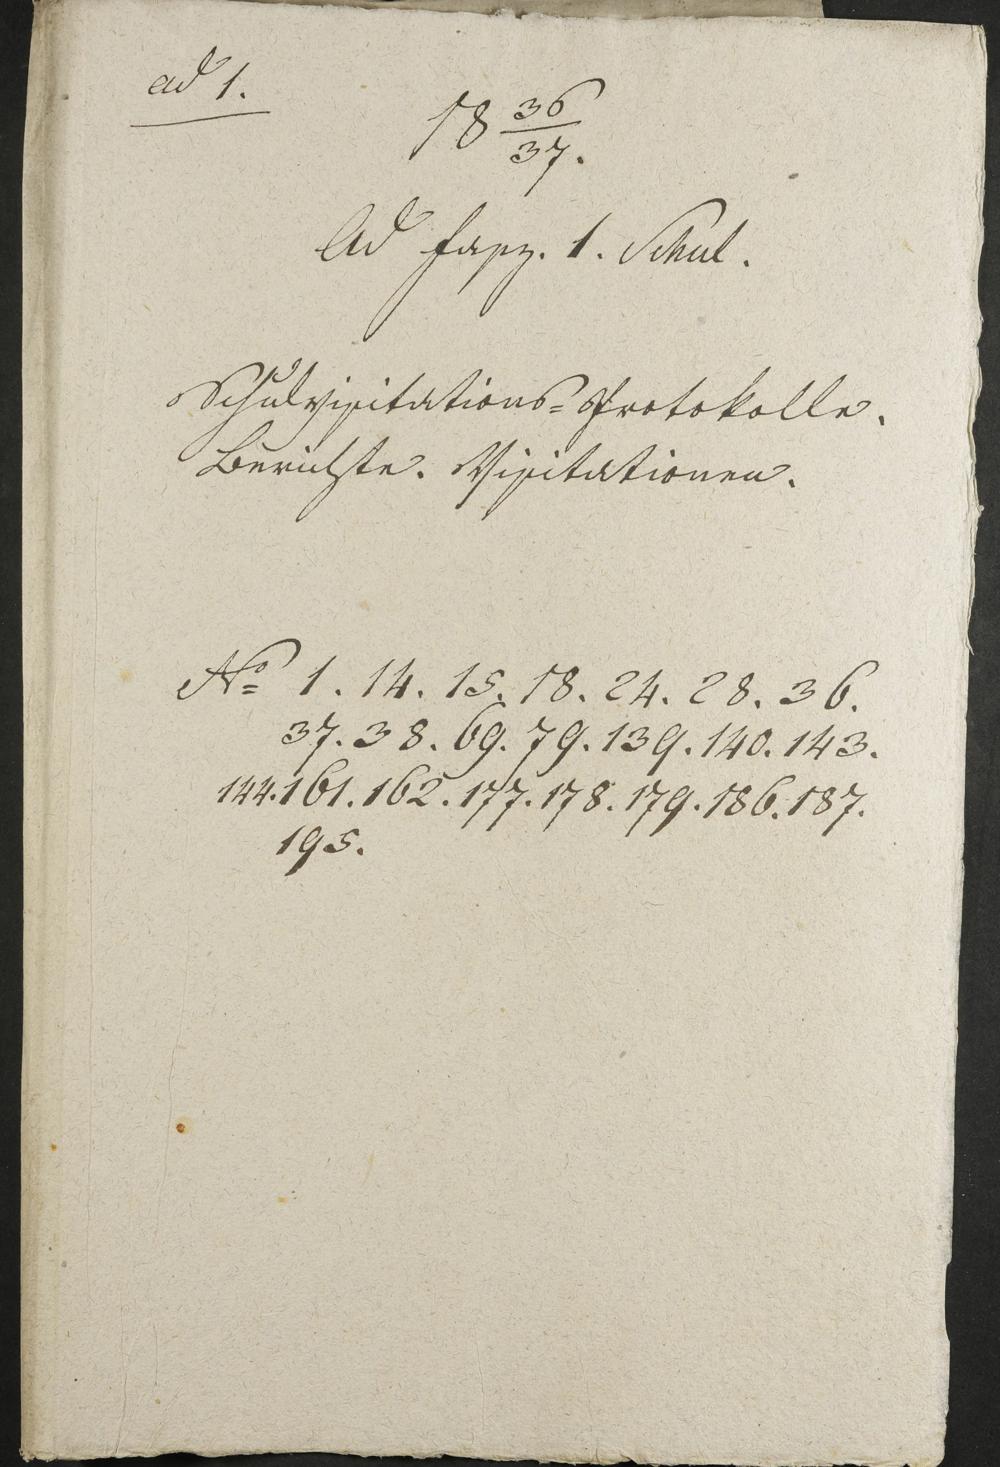 ad 1.
18 36/37.
Ad Fasz. 1. Schul.
Schulvisitations=Protokolle.
Berichte. Visitationen.
No 1. 14. 15. 18. 24. 28. 36.
37. 38. 69. 79. 139. 140. 143.
144. 161. 162. 177. 178. 179. 186. 187.
195.